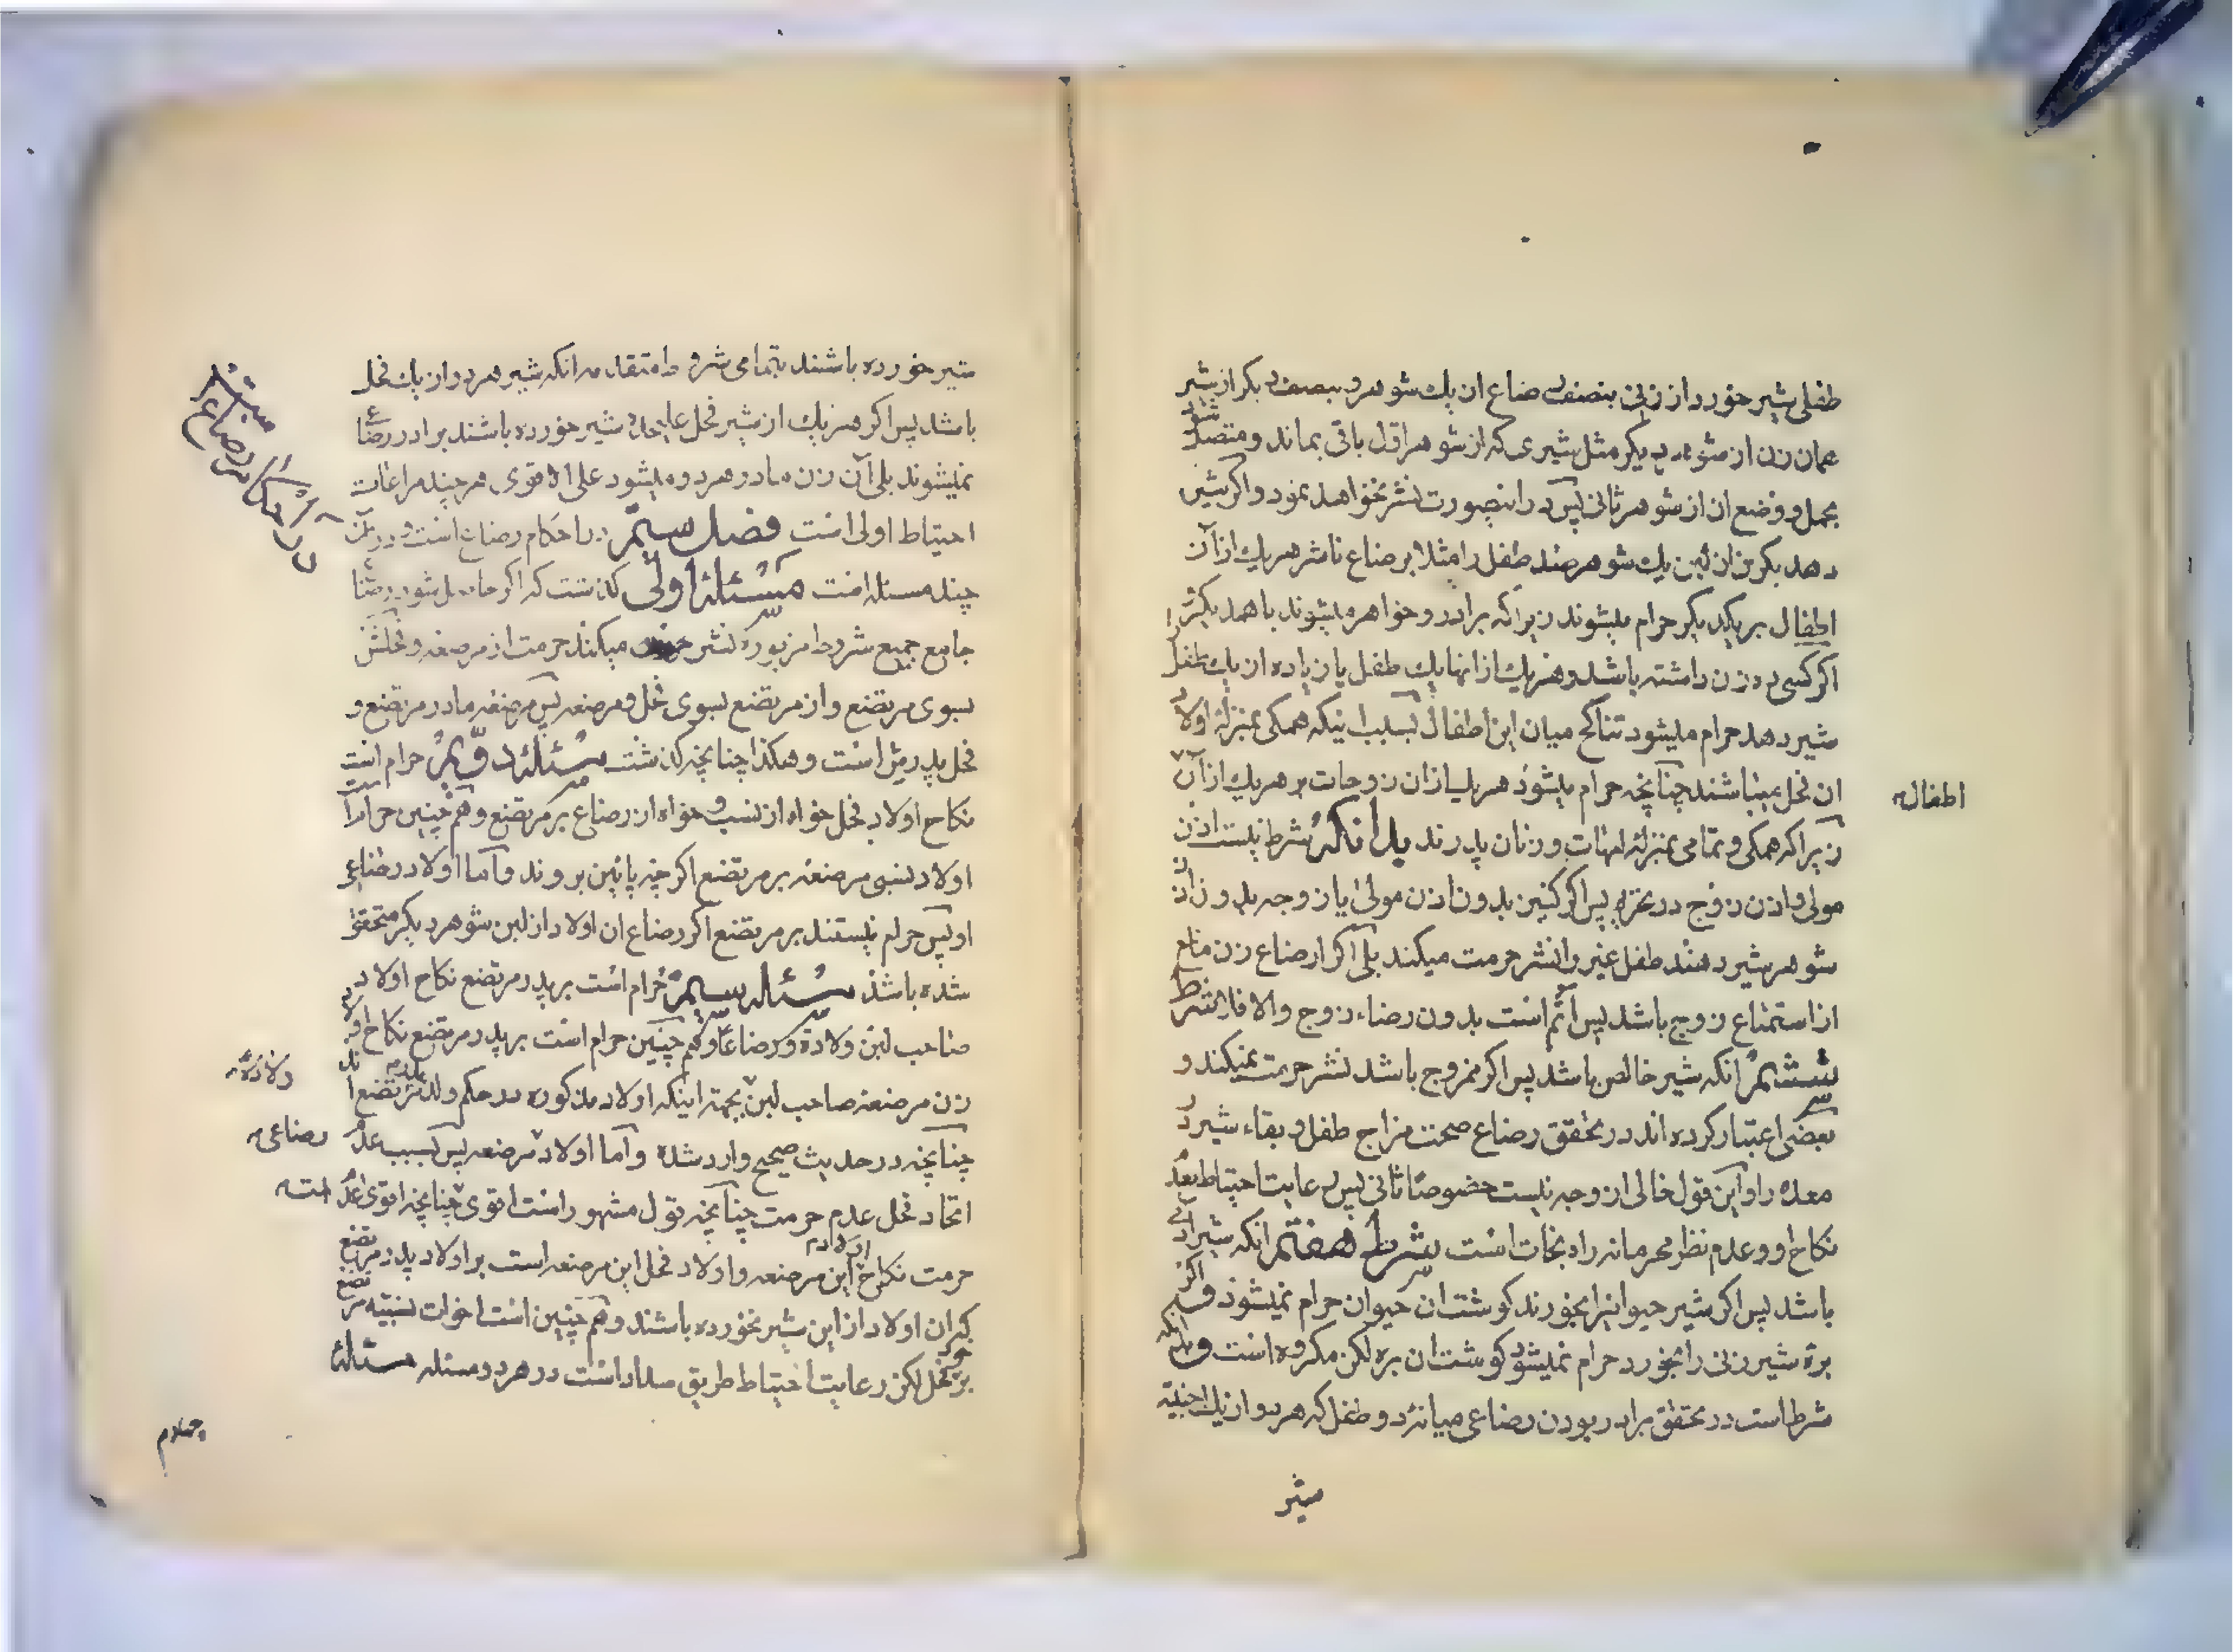 طفلی شیر خورد از زنی بنصف رضاع ان یك شوهر و بنصف دیکر از شیر
همان زن از شوهر دیکر مثل شیری که از شوهر اول باقی بماند و متصل شود
بحمل و وضع ان از شوهر ثانی پس در اینصورت نشر نخواهد نمود و اکر شیر
دهد یکزن از لبن یك شوهر صد طفل را مثلا این رضاع ناشر هر یك از آن
اطفال بر یکدیکر حرام میشوند زیرا که برادر و خواهر میشوند با هم
اکر کسی ده زن داشته باشد و هر یك از انها یك طفل یا زیاده از یك طفل را
شیر دهد حرام میشود تناکح میان این اطفال بسبب اینکه همکی بمنزلۀ اولاد
ان فحل میباشند چنانچه حرام میشود هر یك از ان زوجات بر هر یك از آن
اطفال
زیرا که همکی و تمامی بمنزلۀ امهات و زنان پدرند بدانکه شرط نیست اذن
مولی و اذن زوج در تحریم پس اکر کنیز بدون اذن مولی یا زوجه بدون اذن
شوهر شیر دهند طفل غیر را نشر حرمت میکند بلی اکر ارضاع زن مانع
از استمتاع زوج باشد پس آثم است بدون رضاء زوج والا فلا شرط
ششم انکه شیر خالص باشد پس اکر ممزوج باشد نشر حرمت نمیکند و
بعضی اعتبار کرده اند در تحقق رضاع صحت مزاج طفل و بقاء شیر در
معده را و این قول خالی از وجه نیست خصوصا ثانی پس رعایت احتیاط بعدم
نکاح او و عدم نظر محرمانه راه نجات است شرط هفتم انکه شیر ادمی
باشد پس اکر شیر حیوانرا بخورند کوشت ان حیوان حرام نمیشود و اکر
برۀ شیر زنی را بخورد حرام نمیشود کوشت ان بره لکن مکروه است و بدانکه
شرط است در تحقق برادر بودن رضاعی میانۀ دو طفل که هر دو از یك اجنبیه
شیر
شیر خورده باشند بتمامی شروط متقدمه انکه شیر هر دو از یك فحل
باشد پس اکر هر یك از شیر فحل علیحدۀ شیر خورده باشند برادر رضاعی
نمیشوند بلی آن زن مادر هر دو میشود علی الاقوی هر چند مراعات
احتیاط اولی است فصل سیم در احکام رضاع است و در آن
چند مسئله است مسئلۀ اولی کذشت که اکر حاصل شود رضاع
در احکام رضاع است
جامع جمیع شروط مزبوره نشر میکند حرمت از مرضعه و فحلش
بسوی مرتضع و از مرتضع بسوی فحل و مرضعه پس مرضعه مادر مرتضع و
فحل پدرش است و هکذا چنانچه کذشت مسئلۀ دویم حرام است
نکاح اولاد فحل خواه از نسب و خواه از رضاع بر مرتضع و هم چنین حرام است
اولاد نسبی مرضعه بر مرتضع اکر چه پائین بروند و اما اولاد رضاعی
او پس حرام نیستند بر مرتضع اکر رضاع ان اولاد از لبن شوهر دیکر متحقق
شده باشد مسئلۀ سیم حرام است بر پدر مرتضع نکاح اولاد
صاحب لبن ولادة و رضاعا و هم چنین حرام است بر پدر مرتضع نکاح اولاد
زن مرضعه صاحب لبن بجهة اینکه اولاد مذکوره در حکم ولد مرتضع اند
ولادة
چنانچه در حدیث صحیح وارد شده و اما اولاد مرضعه پس بسبب عدم
رضاعی
اتحاد فحل عدم حرمت چنانچه قول مشهور است اقوی چنانچه اقوی عدم
است
حرمت نکاح اولاد این مرضعه و اولاد فحل این مرضعه است بر اولاد پدر مرتضع
که ان اولاد از این شیر نخورده باشند و هم چنین است اخوات نسبیه مرتضع
بر فحل لکن رعایت احتیاط طریق سداد است در هر دو مسئله مسئلۀ
چهارم